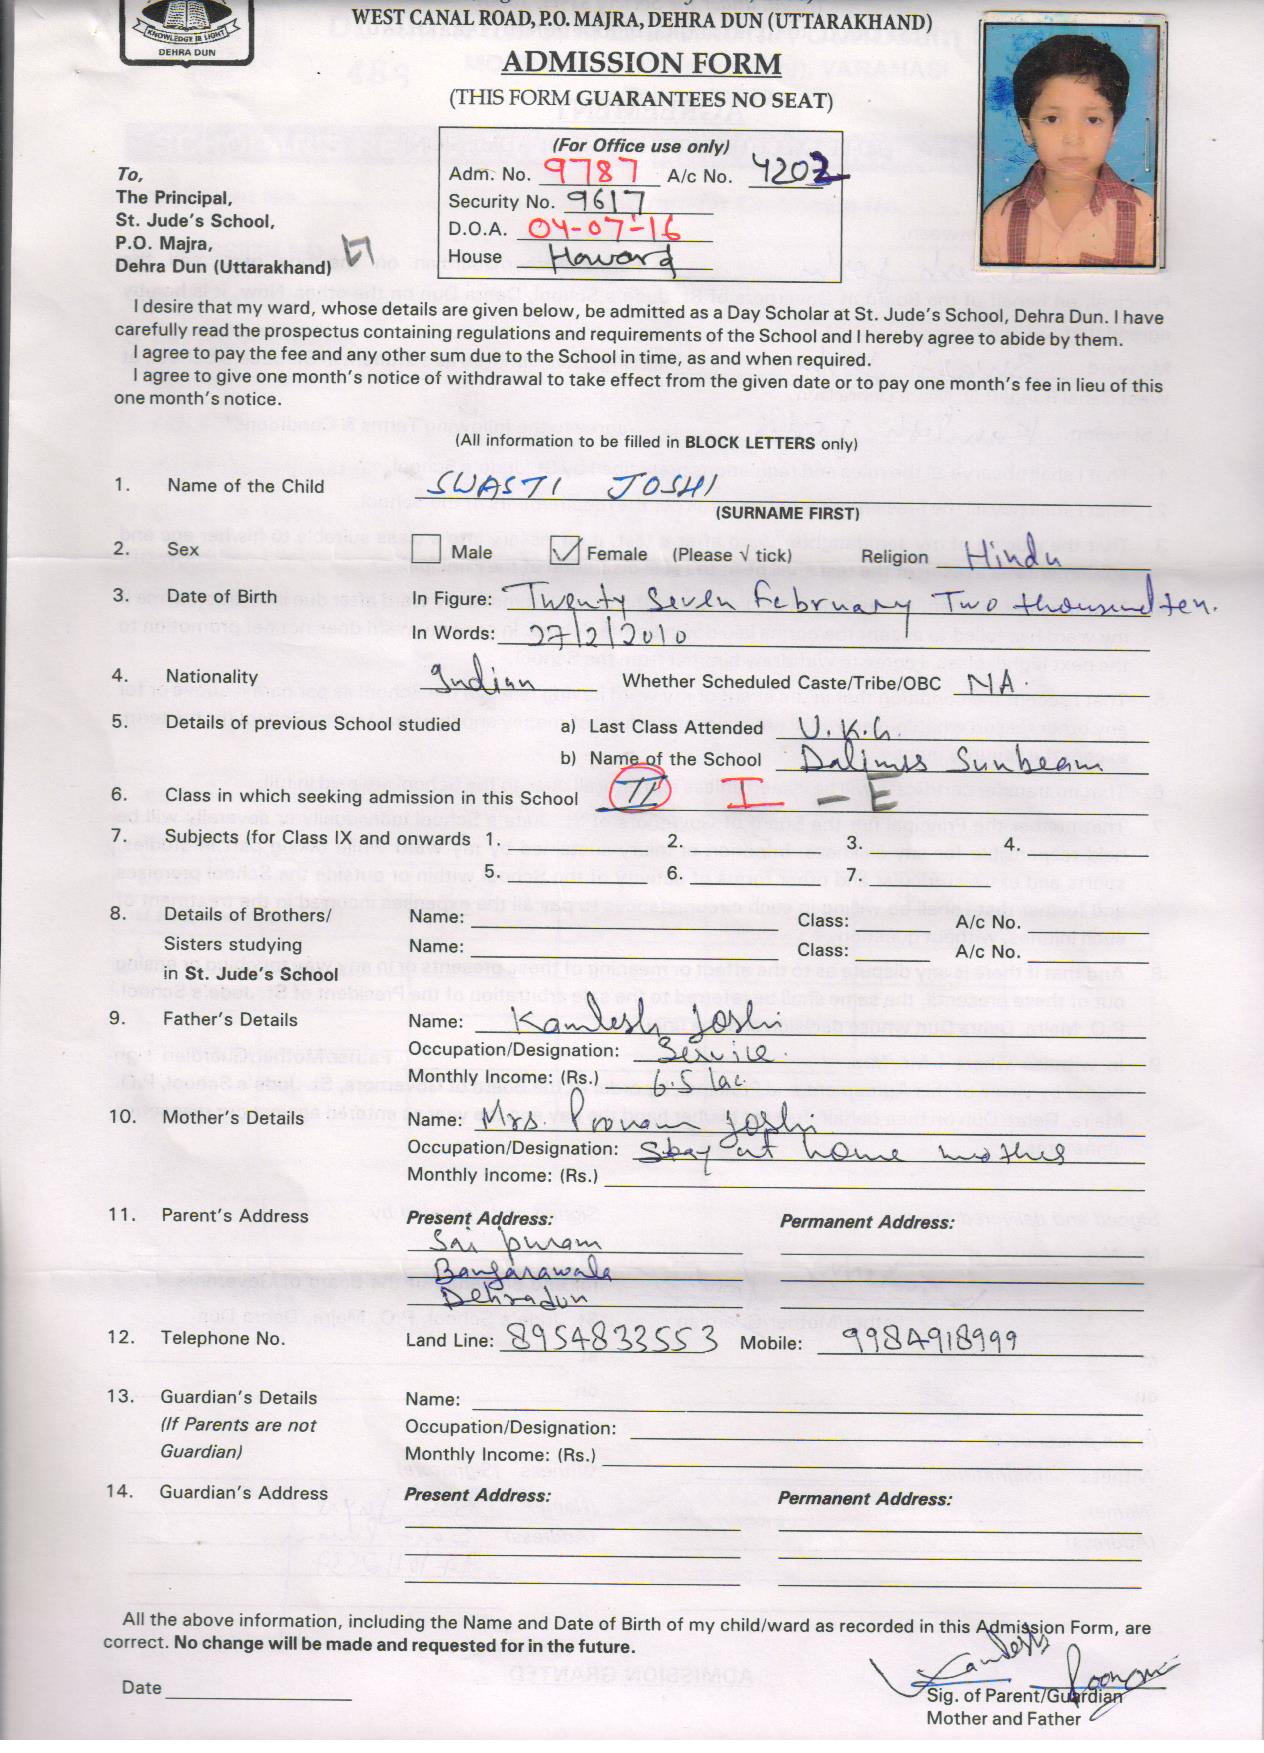 KNOWLEDGE IS LIGHT
DEHRA DUN
WEST CANAL ROAD, P.O. MAJRA, DEHRA DUN (UTTARAKHAND)
ADMISSION FORM
(THIS FORM GUARANTEES NO SEAT)
(For Office use only)
Adm. No. 9787 A/c No. 4202
Security No. 9617
D.O.A. 04-07-16
House Haward
To,
The Principal,
St. Jude's School,
P.O. Majra,
Dehra Dun (Uttarakhand)
I desire that my ward, whose details are given below, be admitted as a Day Scholar at St. Jude's School, Dehra Dun. I have
carefully read the prospectus containing regulations and requirements of the School and I hereby agree to abide by them.
I agree to pay the fee and any other sum due to the School in time, as and when required.
I agree to give one month's notice of withdrawal to take effect from the given date or to pay one month's fee in lieu of this
one month's notice.
(All information to be filled in BLOCK LETTERS only)
1. Name of the Child SWASTI JOSHI
(SURNAME FIRST)
2. Sex Male Female (Please √ tick) Religion Hindu
3. Date of Birth In Figure: Twenty Seven February Two thousand ten.
In Words: 27/2/2010
4. Nationality Indian Whether Scheduled Caste/Tribe/OBC NA.
5. Details of previous School studied a) Last Class Attended U.K.G.
b) Name of the School Dalimss Sunbeam
6. Class in which seeking admission in this School II I - E
7. Subjects (for Class IX and onwards 1. 2. 3. 4.
5. 6. 7.
8. Details of Brothers/ Name: Class: A/c No.
Sisters studying Name: Class: A/c No.
in St. Jude's School
9. Father's Details Name: Kamlesh Joshi
Occupation/Designation: Service.
Monthly Income: (Rs.) 6.5 lac
10. Mother's Details Name: Mrs. Poonam Joshi
Occupation/Designation: Stay at home mother
Monthly Income: (Rs.)
11. Parent's Address Present Address: Permanent Address:
Sai puram
Banjarawala
Dehradun
12. Telephone No. Land Line: 8954833553 Mobile: 9984918999
13. Guardian's Details Name:
(If Parents are not Occupation/Designation:
Guardian) Monthly Income: (Rs.)
14. Guardian's Address Present Address: Permanent Address:
All the above information, including the Name and Date of Birth of my child/ward as recorded in this Admission Form, are
correct. No change will be made and requested for in the future.
Kamlesh Poonam
Date Sig. of Parent/Guardian
Mother and Father